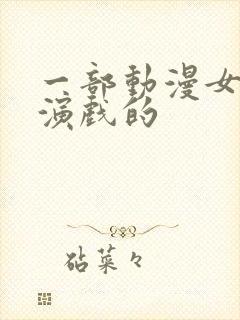 一部動漫女
演戲的
砧菜々